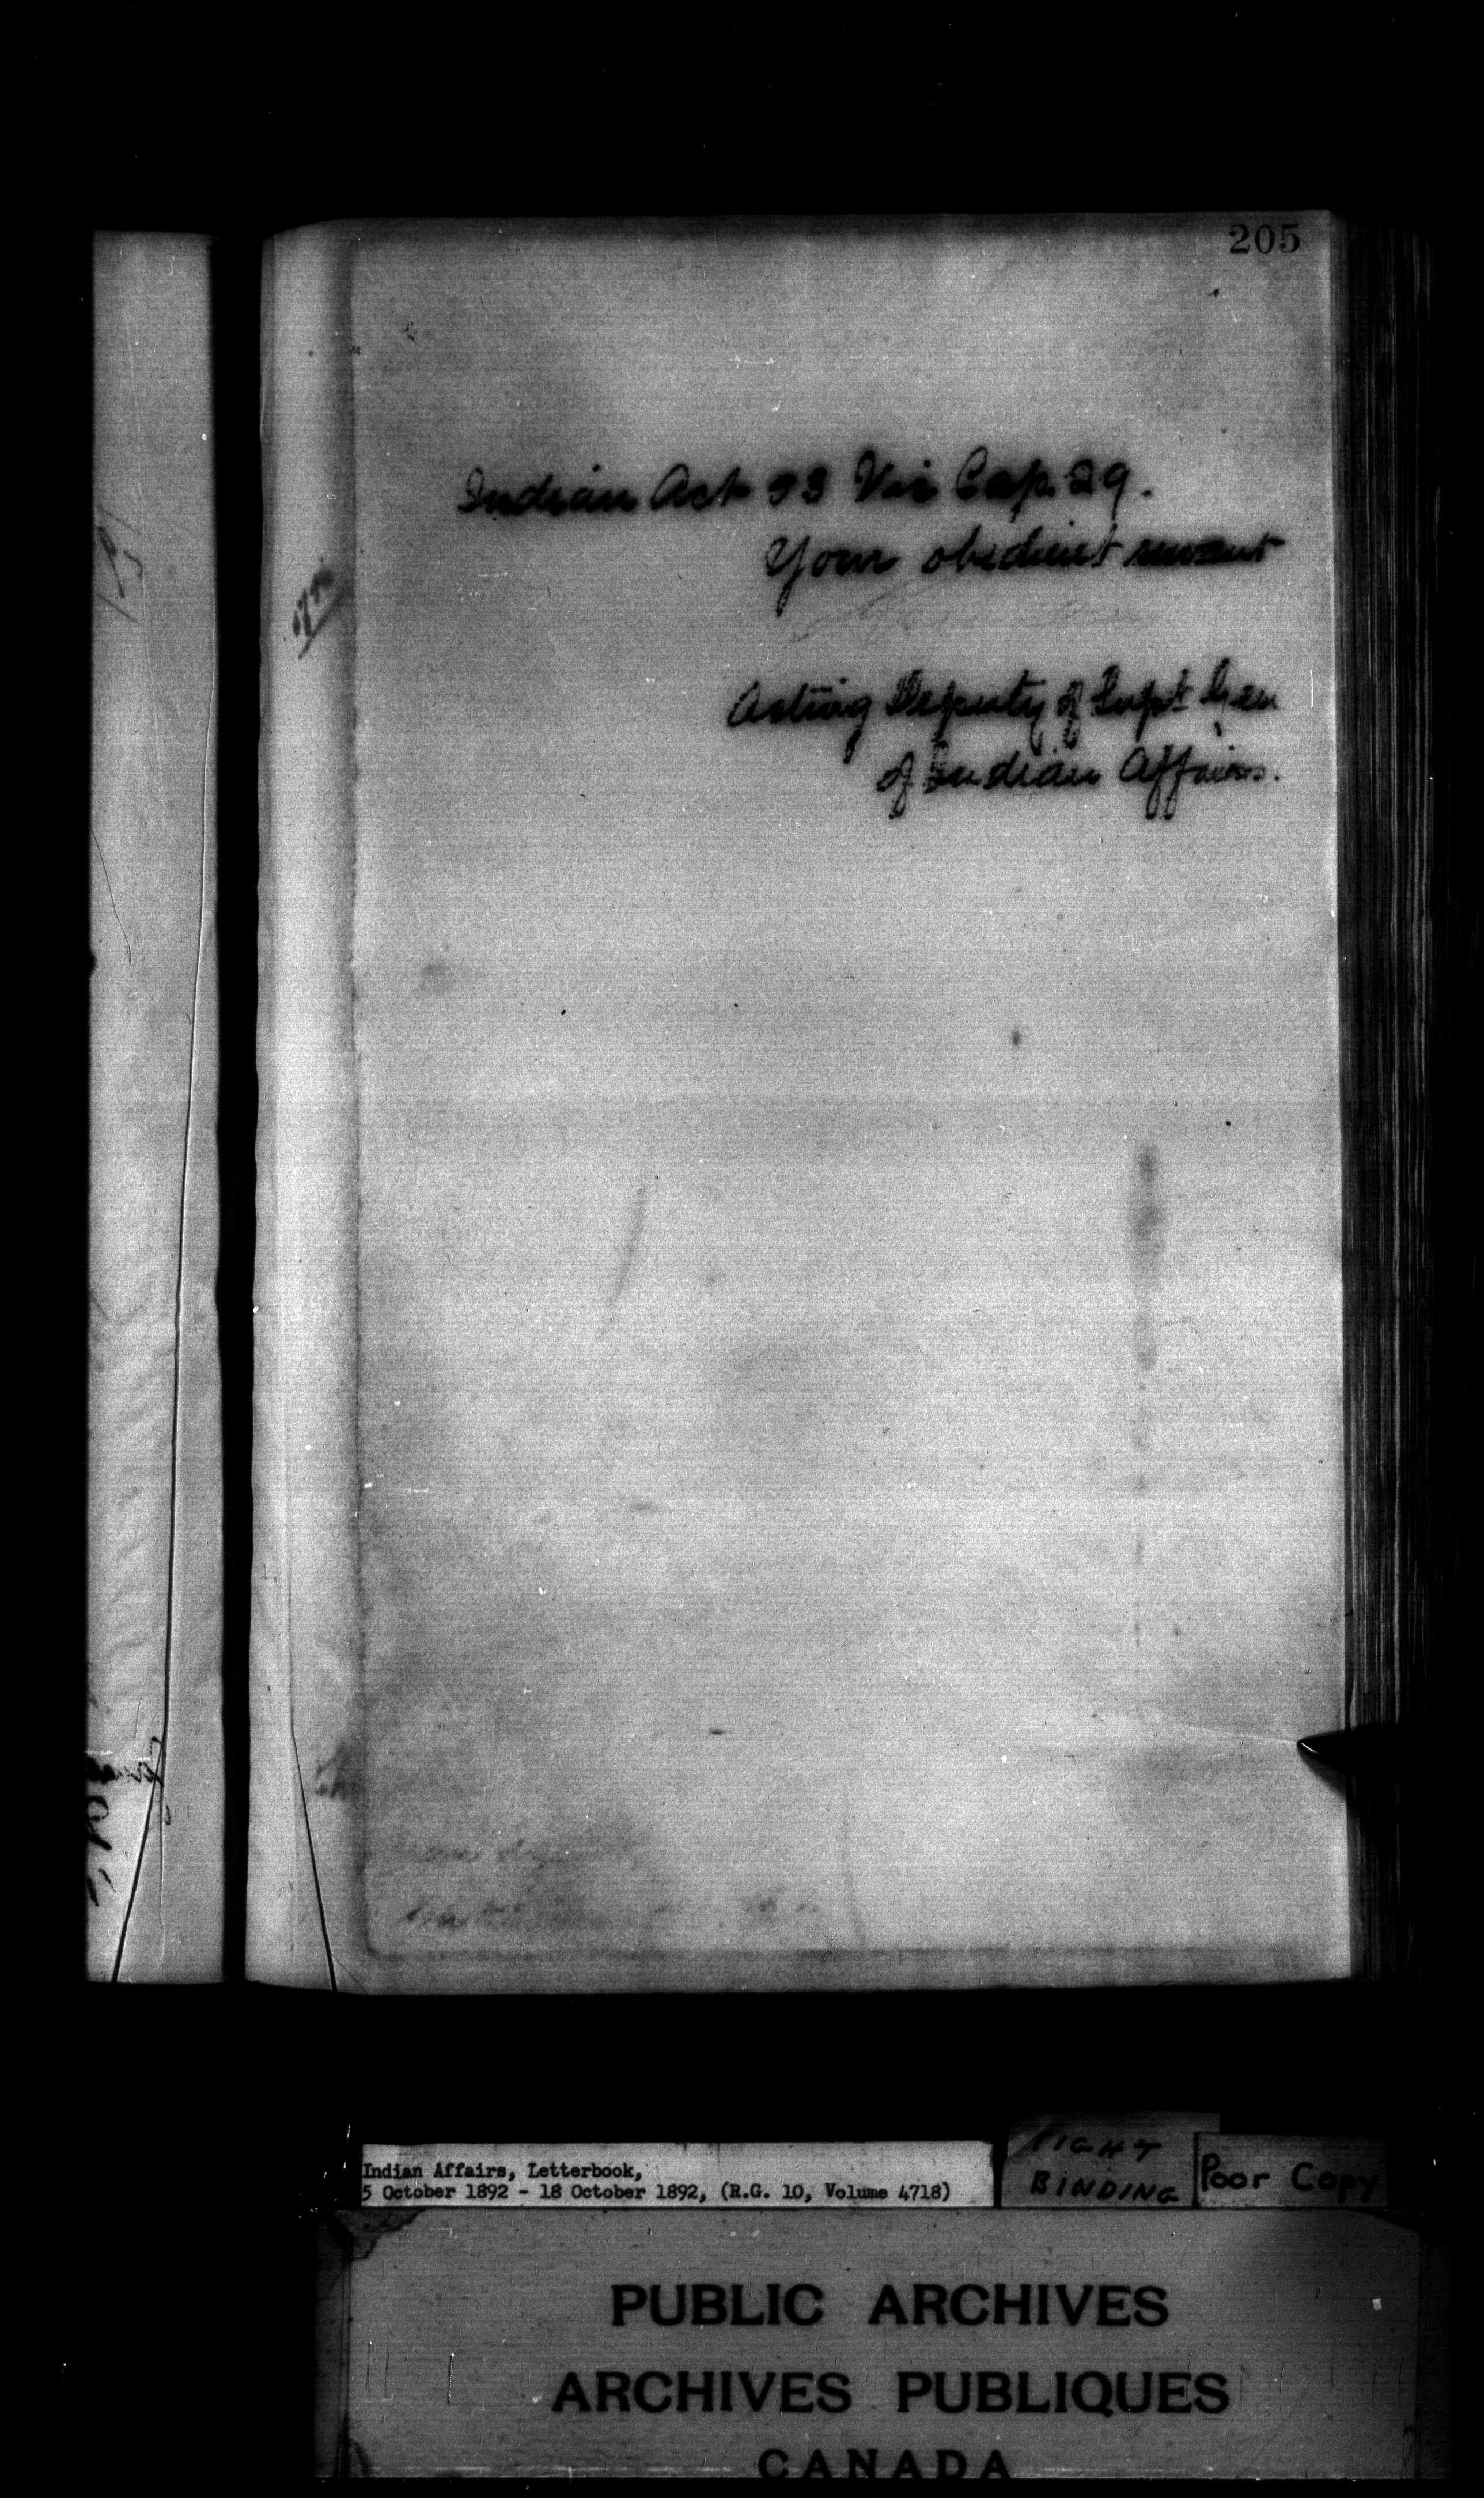 205
Indian Act 53 Vic Cap. 29.
Your obedient servant
Acting Deputy of Supt Gen
of Indian Affairs.
Indian Affairs, Letterbook,
5 October 1892 - 18 October 1892, (R.G. 10, Volume 4718)
TIGHT
BINDING
Poor Copy
PUBLIC ARCHIVES
ARCHIVES PUBLIQUES
CANADA